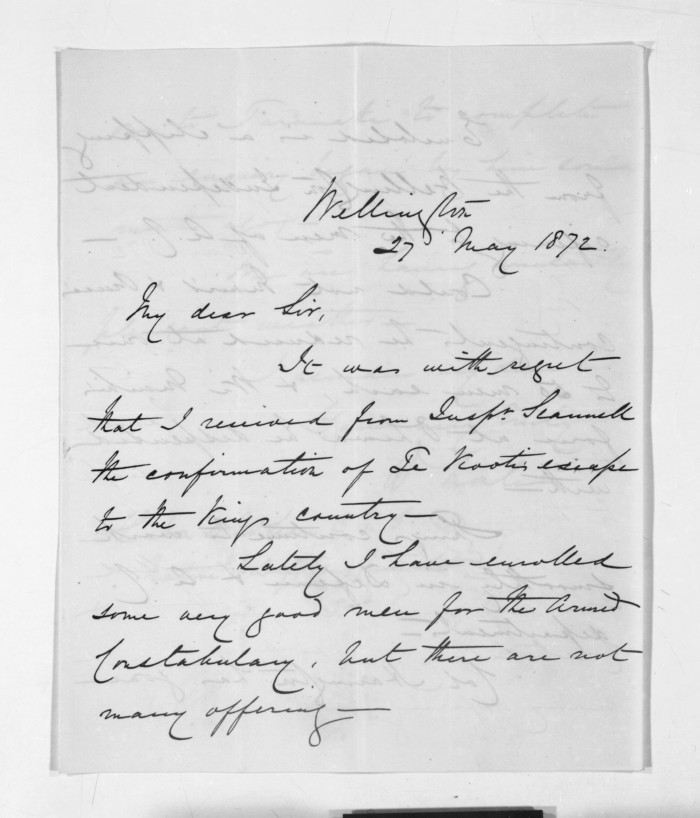 Wellington
27 May 1872.
My dear Sir,
It was with regret
that I received from Inspr. Scannell
the confirmation of Te Kootis escape
to the Kings country—
Lately I have enrolled
some very good men for the Armed
Constabulary, but there are not
many offering—